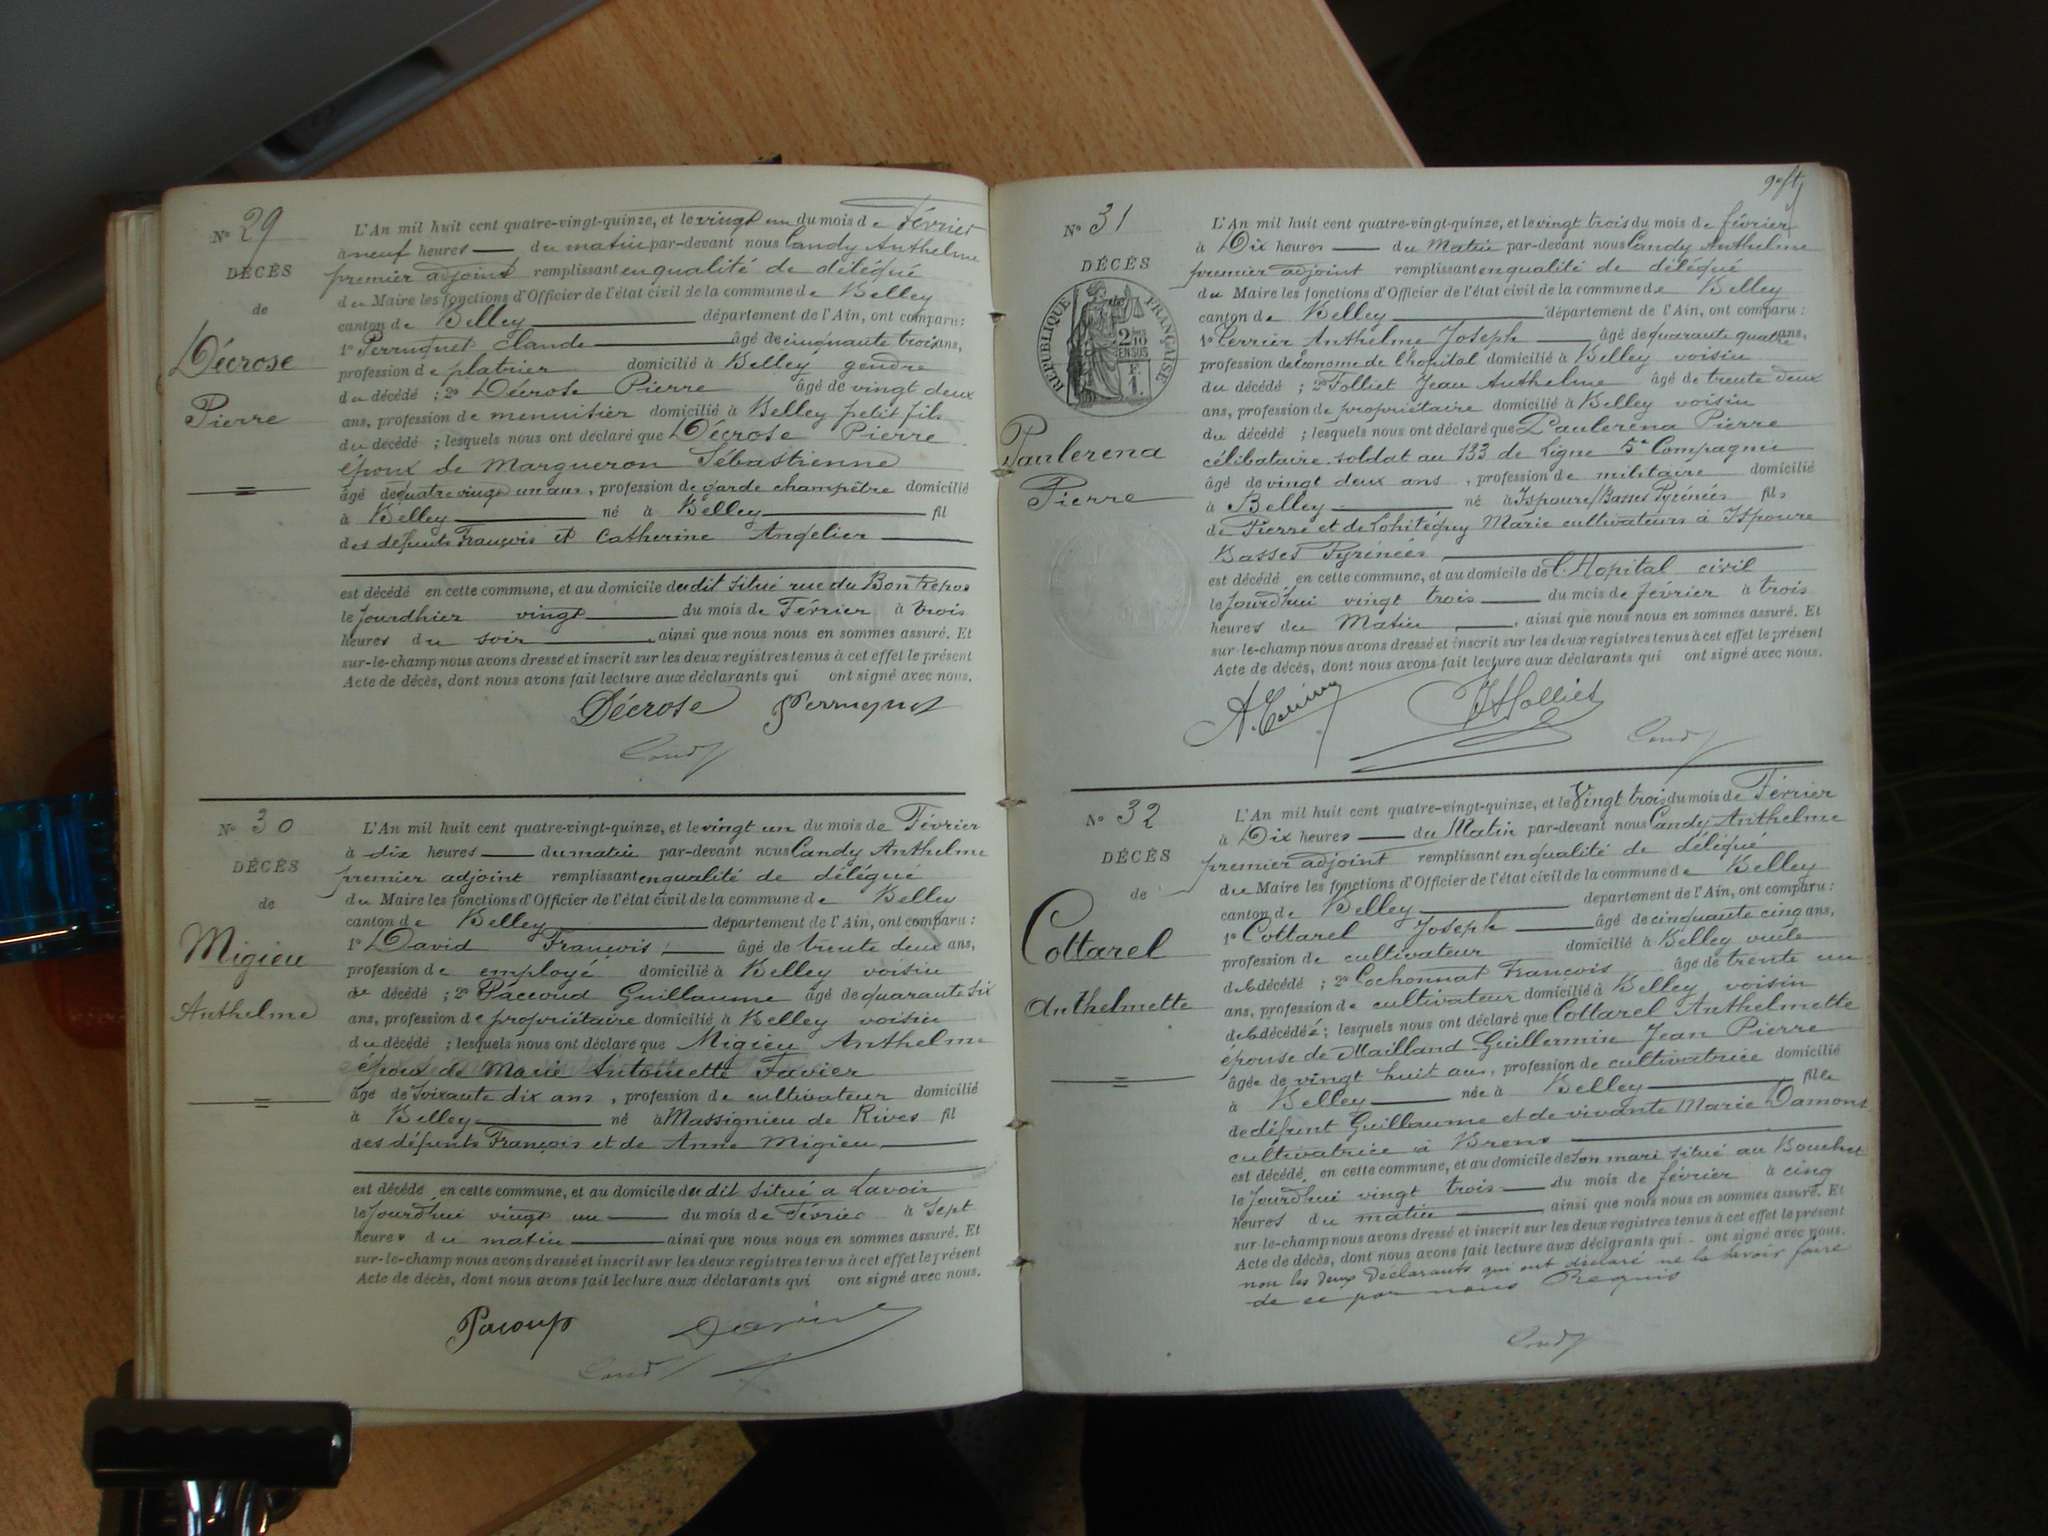 N° 29
DÉCÈS
de
Décrose
Pierre
L'An mil huit cent quatre-vingt-quinze, et le vingt un du mois de Février
à neuf heures du matin par-devant nous Candy Anthelme
premier adjoint remplissant en qualité de délégué
du Maire les fonctions d'Officier de l'état civil de la commune de Belley
canton de Belley département de l'Ain, ont comparu :
1° Perruquet Claude âgé de cinquante trois ans,
profession de platrier domicilié à Belley gendre
du décédé ; 2° Décrose Pierre âgé de vingt deux
ans, profession de menuisier domicilié à Belley petit fils
du décédé ; lesquels nous ont déclaré que Décrose Pierre
époux de Margueron Sébastienne
âgé de quatre vingt un ans, profession de garde champêtre domicilié
à Belley né à Belley fil
des défunts François et Catherine Angelier
est décédé en cette commune, et au domicile dudit situé rue du Bon Repos
le jourdhier vingt du mois de Février à trois
heures du soir, ainsi que nous nous en sommes assuré. Et
sur-le-champ nous avons dressé et inscrit sur les deux registres tenus à cet effet le présent
Acte de décès, dont nous avons fait lecture aux déclarants qui ont signé avec nous.
Décrose Perruquet
Candy
N° 30
DÉCÈS
de
Migieu
Anthelme
L'An mil huit cent quatre-vingt-quinze, et le vingt un du mois de Février
à dix heures du matin par-devant nous Candy Anthelme
premier adjoint remplissant en qualité de délégué
du Maire les fonctions d'Officier de l'état civil de la commune de Belley
canton de Belley département de l'Ain, ont comparu :
1° David François âgé de trente deux ans,
profession de employé domicilié à Belley voisin
de décédé ; 2° Paccoud Guillaume âgé de quarante six
ans, profession de propriétaire domicilié à Belley voisin
du décédé ; lesquels nous ont déclaré que Migieu Anthelme
époux de Marie Antoinette Favier
âgé de soixante dix ans, profession de cultivateur domicilié
à Belley né à Massignieu de Rives fil
des défunts François et de Anne Migieu
est décédé en cette commune, et au domicile dudit situé a Lavoir
le jourdhui vingt un du mois de Février à sept
heures du matin ainsi que nous nous en sommes assuré. Et
sur-le-champ nous avons dressé et inscrit sur les deux registres tenus à cet effet le présent
Acte de décès, dont nous avons fait lecture aux déclarants qui ont signé avec nous.
Candy
N° 31
DÉCÈS
de
RÉPUBLIQUE FRANÇAISE
2/10
EN SUS
Paulerena
Pierre
L'An mil huit cent quatre-vingt-quinze, et le vingt trois du mois de février
à Dix heures du Matin par-devant nous Candy Anthelme
premier adjoint remplissant en qualité de délégué
du Maire les fonctions d'Officier de l'état civil de la commune de Belley
canton de Belley département de l'Ain, ont comparu :
1° Perrier Anthelme Joseph âgé de quarante quatre ans,
profession de Econome de l'hopital domicilié à Belley voisin
du décédé ; 2° Folliet Jean Anthelme âgé de trente deux
ans, profession de propriétaire domicilié à Belley voisin
du décédé ; lesquels nous ont déclaré que Paulerena Pierre
célibataire soldat au 133 de Ligne 5e Compagnie
âgé de vingt deux ans, profession de militaire domicilié
à Belley né à Ispoure/Basses Pyrénées fils
de Pierre et de Lohitéguy Marie cultivateurs à Ispoure
Basses Pyrénées
est décédé en cette commune, et au domicile de l'Hopital civil
le jourdhui vingt trois du mois de février à trois
heures du Matin, ainsi que nous nous en sommes assuré. Et
sur-le-champ nous avons dressé et inscrit sur les deux registres tenus à cet effet le présent
Acte de décès, dont nous avons fait lecture aux déclarants qui ont signé avec nous.
Candy
N° 32
DÉCÈS
de
Cottarel
Anthelmette
L'An mil huit cent quatre-vingt-quinze, et le Vingt trois du mois de Février
à Dix heures du Matin par-devant nous Candy Anthelme
premier adjoint remplissant en qualité de délégué
du Maire les fonctions d'Officier de l'état civil de la commune de Belley
canton de Belley département de l'Ain, ont comparu :
1° Cottarel Joseph âgé de cinquante cinq ans,
profession de cultivateur domicilié à Belley
de la décédé ; 2° Cochonnat François âgé de trente un
ans, profession de cultivateur domicilié à Belley voisin
de la décédée ; lesquels nous ont déclaré que Cottarel Anthelmette
épouse de Mailland Guillermin Jean Pierre
âgée de vingt huit ans, profession de cultivatrice domicilié
à Belley née à Belley fille
de défunt Guillaume et de vivante Marie Damont
cultivatrice à Brens
est décédé en cette commune, et au domicile de son mari situé au Bouchet
le jourdhui vingt trois du mois de février à cinq
heures du matin ainsi que nous nous en sommes assuré. Et
sur-le-champ nous avons dressé et inscrit sur les deux registres tenus à cet effet le présent
Acte de décès, dont nous avons fait lecture aux déclarants qui ont signé avec nous.
non les deux déclarants qui ont déclaré ne la savoir faire
de ce par nous Requis
Candy